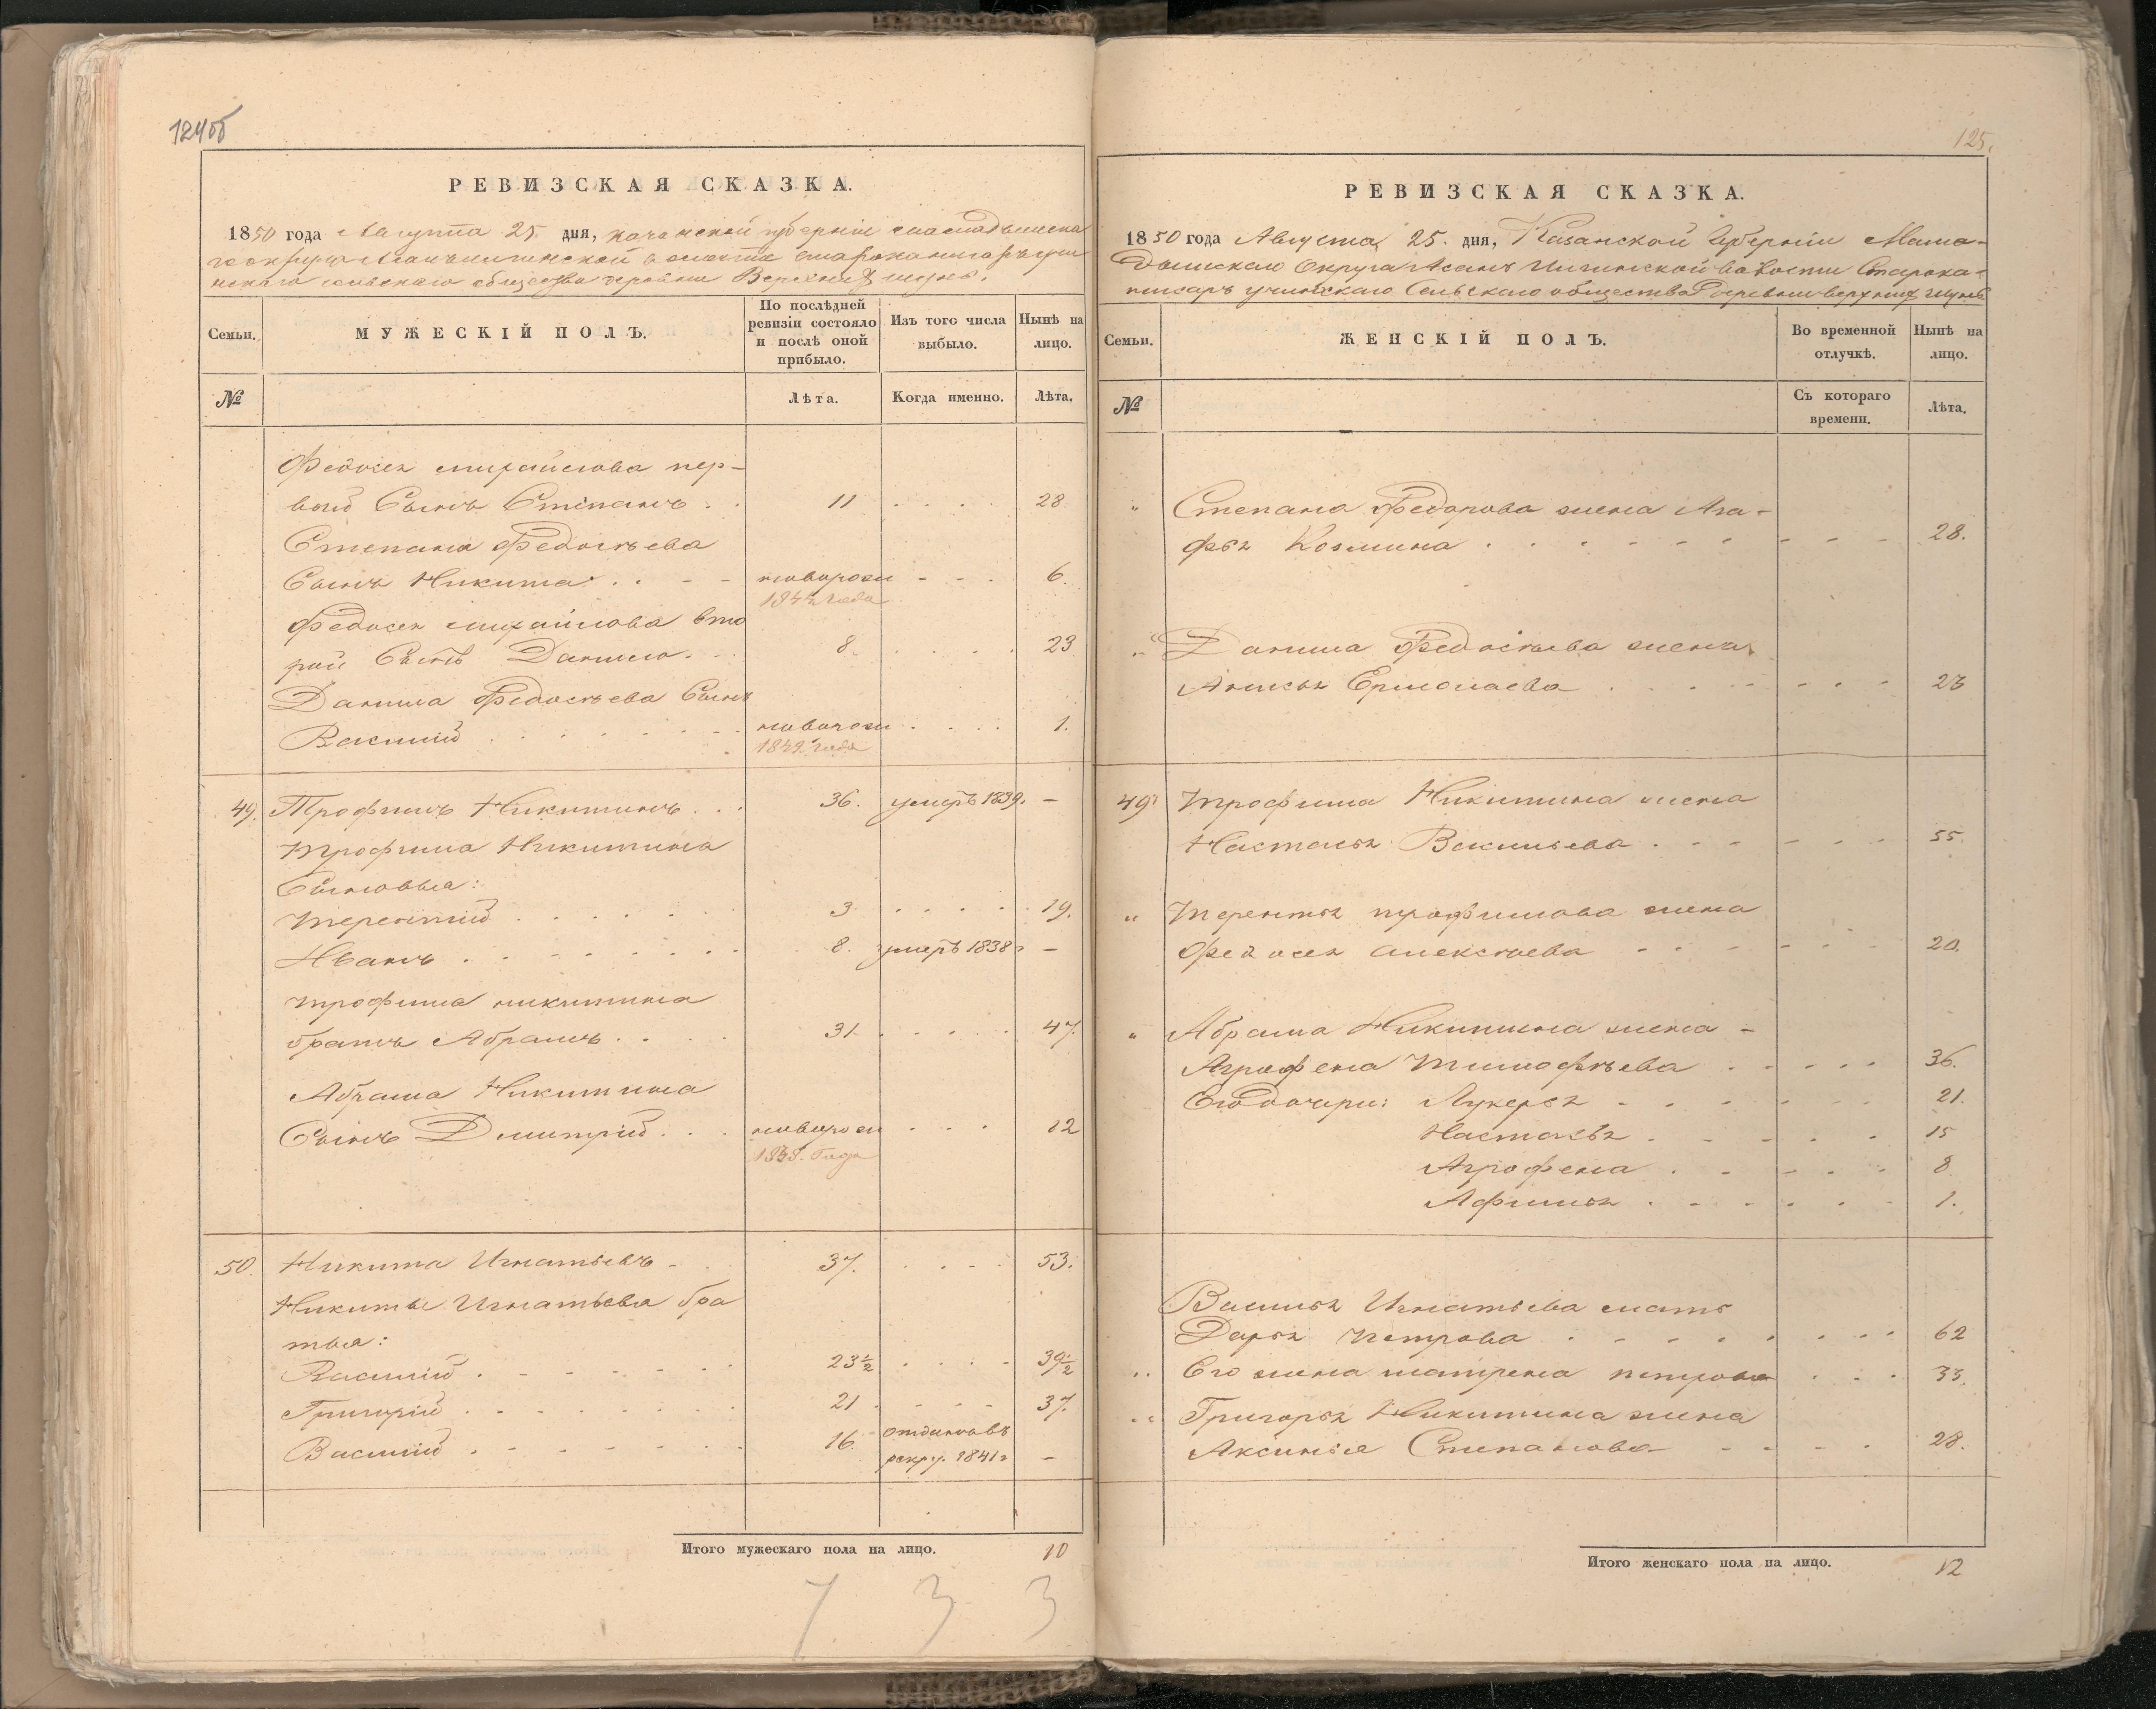 124об
РЕВИЗСКАЯ СКАЗКА.
1850 года Августа 25 дня, казанской губерніи мамадышска
го округа
скаго сельскаго общества деревни Верхних шунь.
Семьи. МУЖЕСКІЙ ПОЛЪ. По послѣдней ревизіи состояло и послѣ оной прибыло. Изъ того числа выбыло. Нынѣ на лицо.
№ Лѣта. Когда именно. Лѣта.
Федосея михайлова пер-
вый Сынъ Степанъ 11 28
Степана Федосѣева
Сынъ Никита новорож 6.
1844 года
Федосея михайлова вто
рой Сынъ Данило 8 23
Данила Федосѣева Сынъ
Василий новорож 1.
1849 года
49. Трофимъ Никитинъ 36. умеръ 1839. —
трофима Никитина
Сыновья:
терентий 3 19.
Иванъ 8. умеръ 1838 г —
трофима никитина
братъ Абрамъ 31 47.
Абрама Никитина
Сынъ Дмитрій новорож 12
1838. Года
50. Никита Игнатьевъ 37. 53.
Никиты Игнатьева бра
тья:
Василий 23½ 39½
Григорій 21 37.
Василий 16. отданъ въ
рекру. 1841 г —
Итого мужескаго пола на лицо. 10
7 3 3
125.
РЕВИЗСКАЯ СКАЗКА.
1850 года Августа 25. дня, Казанской Губерніи Мама-
дышскаго Округа Волости Старока-
Сельскаго общества деревни верхних шунь
Семьи. ЖЕНСКІЙ ПОЛЪ. Во временной отлучкѣ. Нынѣ на лицо.
№ Съ котораго времени. Лѣта.
" Степана Федорова жена Ага-
фья Козмина 28.
" Данила Федосѣева жена
Ермолаева 23
49 трофима Никитина жена
Настасья Васильева 55.
" терентья трофимова жена
Федосея алексѣева 20.
" Абрама Никитина жена -
Агрофена тимофѣева 36.
Его дочери: Лукерья 21.
Настасья 15
Агрофена 8
Афимья 1.
Василья Игнатьева мать
Дарья петрова 62
" Его жена матрена петрова 33.
" Григорья Никитина жена
Аксинья Степанова 28.
Итого женскаго пола на лицо. 12